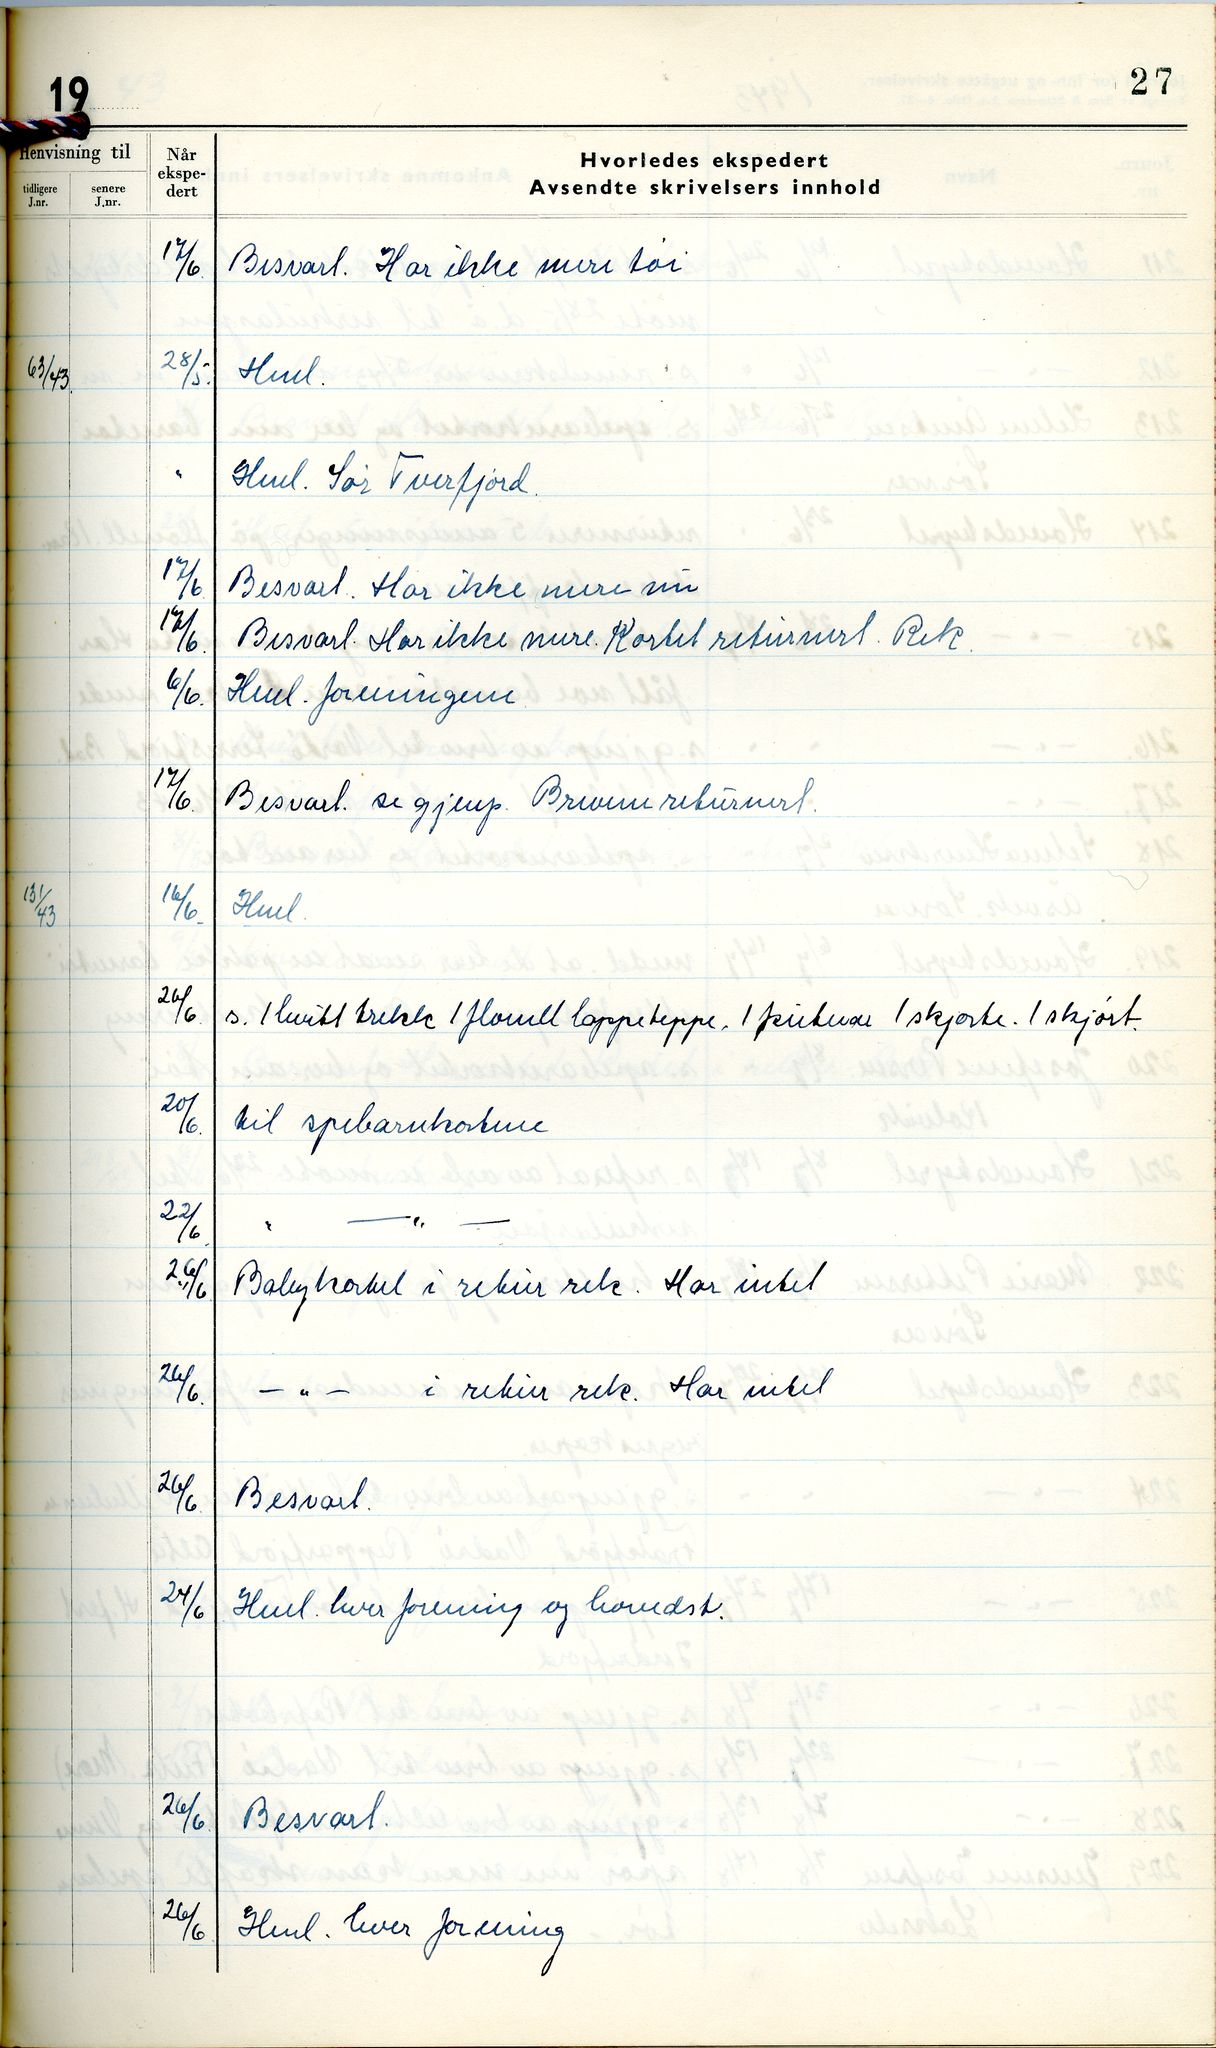 19
27
Henvisning til
tidligere J.nr.
senere J.nr.
Når ekspedert
Hvorledes ekspedert
Avsendte skrivelsers innhold
17/6. Besvarl. Har ikke mere tøi
63/43. 28/5. Henl.
" Henl. Sør Tverfjord.
17/6 Besvarl. Har ikke mere nu
17/6. Besvarl. Har ikke mere. Kortet returnert. Rek.
6/6. Henl. foreningene
17/6. Besvarl. se gjenp. Brevene returnert.
131/43 16/6. Henl.
26/6 s. 1 hvitt trekk 1 flonell lappeteppe. 1 1 skjorte. 1 skjørt.
20/6. til spebarnkortene
22/6. " — " —
26/6 Babykortet i retur rek. Har intet
26/6. — " — i retur rek. Har intet
26/6. Besvarl.
24/6 Henl. hver forening og hovedst.
26/6. Besvarl.
26/6 Henl. hver forening